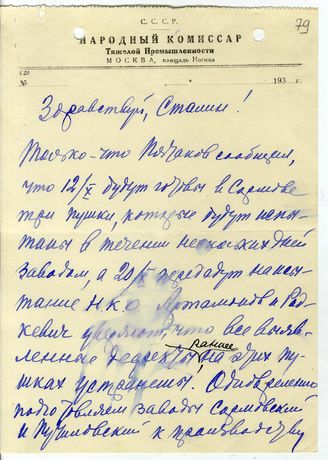 79
С. С. С. Р.
НАРОДНЫЙ КОМИССАР
Тяжелой Промышленности
МОСКВА, площадь Ногина
№ 193 г.
Здравствуй, Сталин!
Только-что Пятаков сообщил,
что 12/X будут готовы в Сормове
три пушки, которые будут испы-
таны в течении нескольких дней
заводом, а 20/X передадут на испы-
тание Н.К.О. Артамонов и Рад-
кевич уверяют, что все выяв-
раннее
ленные дефекты на этих пу-
шках устранены. Одновременно
подготовляем заводы Сормовский
и Путиловский к производству